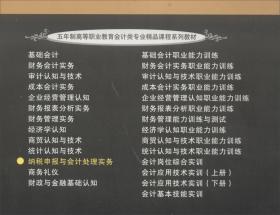 五年制高等职业教育会计类专业精品课程系列教材
基础会计
财务会计实务
审计认知与技术
成本会计实务
企业经营管理认知
财务报表分析实务
财务管理实务
经济学认知
商贸认知与技术
统计认知与技术
纳税申报与会计处理实务
商务礼仪
财政与金融基础认知
基础会计职业能力训练
财务会计实务职业能力训练
审计认知与技术职业能力训练
成本会计实务职业能力训练
企业经营管理认知职业能力训练
财务报表分析实务职业能力训练
财务管理能力训练与测试
经济学认知职业能力训练
商贸认知与技术职业能力训练
统计认知与技术职业能力训练
会计岗位综合实训
会计应用技术实训（上册）
会计应用技术实训（下册）
会计基本技能实训